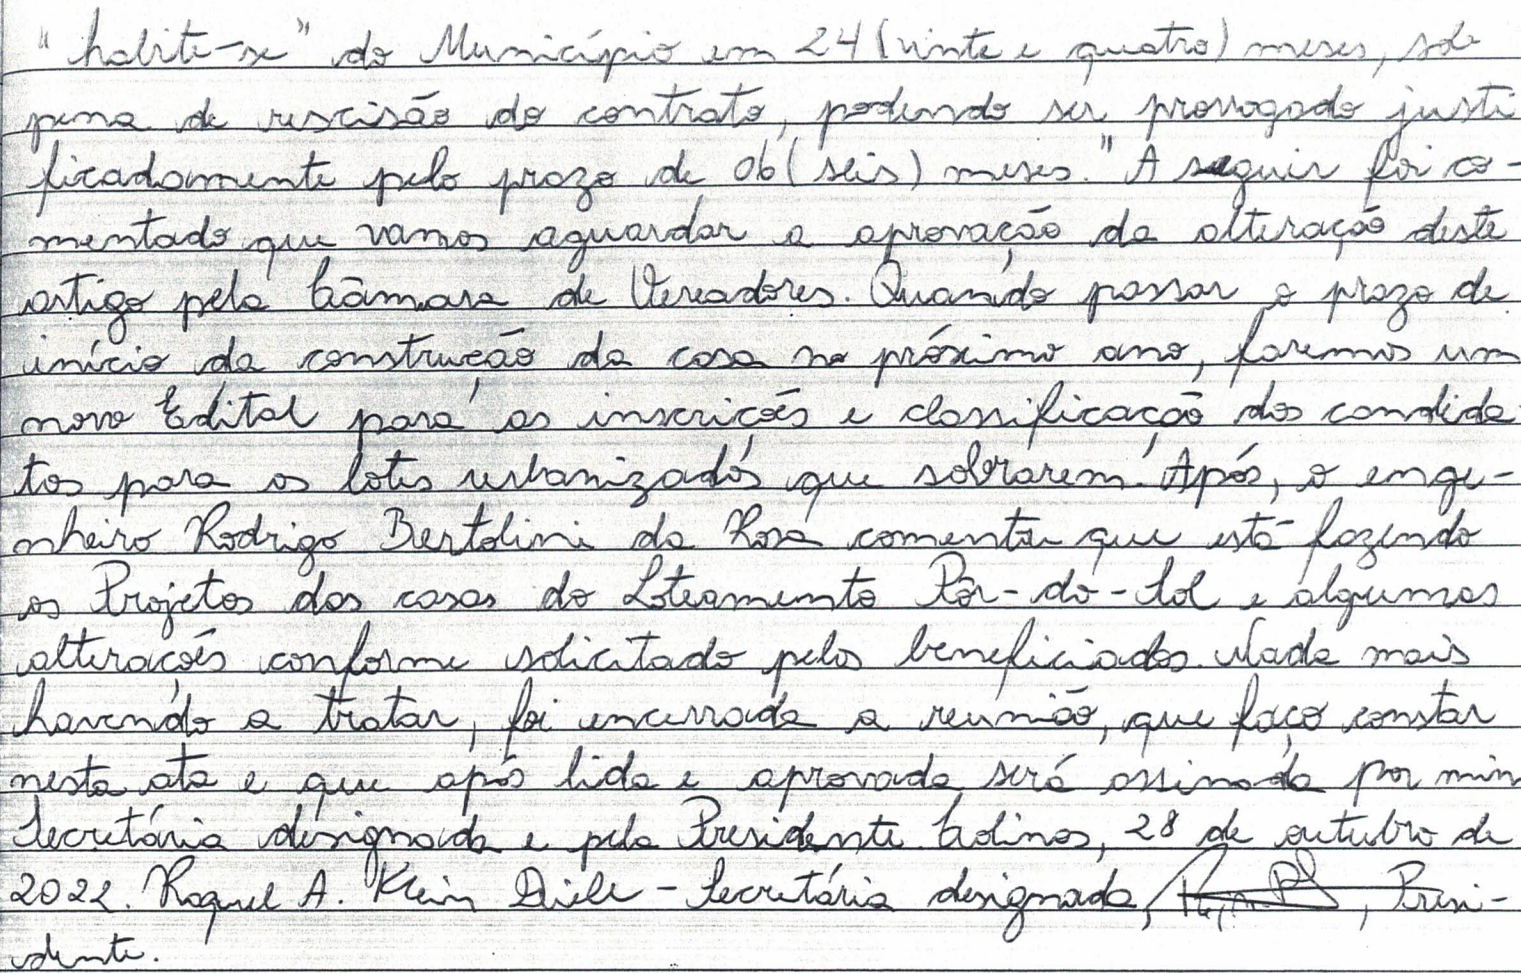 "habite-se" do Município em 24 (vinte e quatro) meses, sob
pena de rescisão do contrato, podendo ser prorrogado justi
ficadamente pelo prazo de 06 (seis) meses." A seguir foi co-
mentado que vamos aguardar a aprovação da alteração deste
artigo pela Câmara de Vereadores. Quando passar o prazo de
início da construção da casa no próximo ano, faremos um
novo Edital para as inscrições e classificação dos candida
tos para os lotes urbanizados que sobrarem. Após, o enge-
nheiro Rodrigo Bertolini da Rosa comenta que está fazendo
os Projetos das casas do Loteamento Pôr-do-Sol e algumas
alterações conforme solicitado pelos beneficiados. Nada mais
havendo a tratar, foi encerrada a reunião, que faço constar
nesta ata e que após lida e aprovada será assinada por mim
Secretária designada e pela Presidente. Colinas, 28 de outubro de
2022. Raquel A. Klein - Secretária designada, , Presi-
dente.